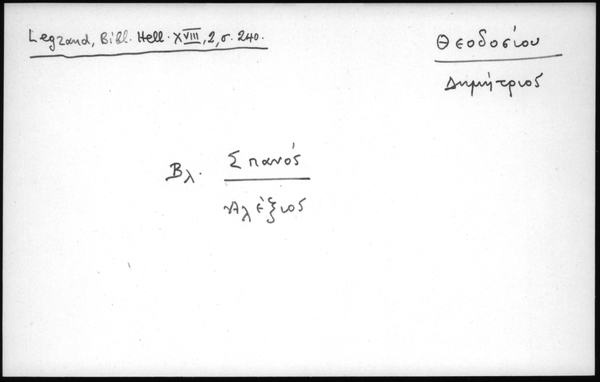 Legrand, Bibl. Hell. XVIII, 2, σ. 240.
Θεοδοσίου
Δημήτριος
Βλ. Σπανός
Αλέξιος